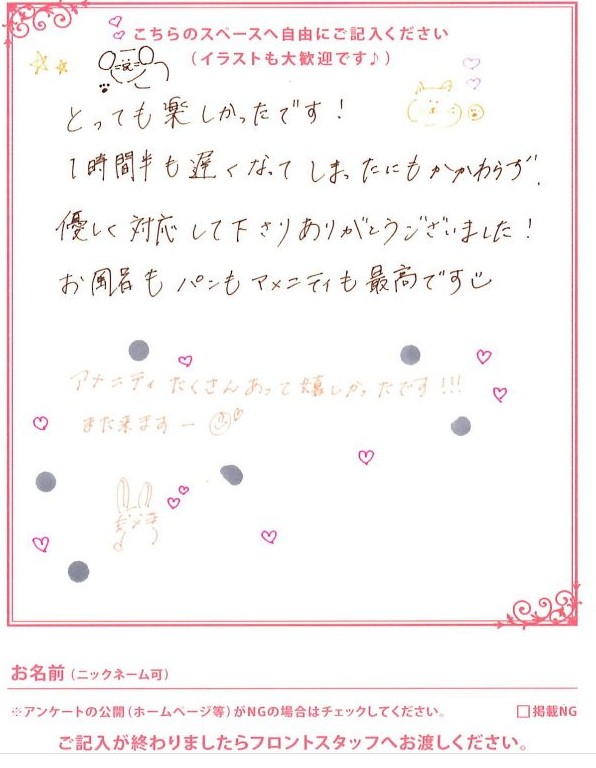 こちらのスペースへ自由にご記入ください
(イラストも大歓迎です♪)
とっても楽しかったです!
1時間半も遅くなってしまったにもかかわらず、
優しく対応して下さりありがとうございました!
お風呂もパンもアメニティも最高です
アメニティたくさんあって嬉しかったです!!!
また来ますー
お名前(ニックネーム可)
※アンケートの公開(ホームページ等)がNGの場合はチェックしてください。 □掲載NG
ご記入が終わりましたらフロントスタッフへお渡しください。